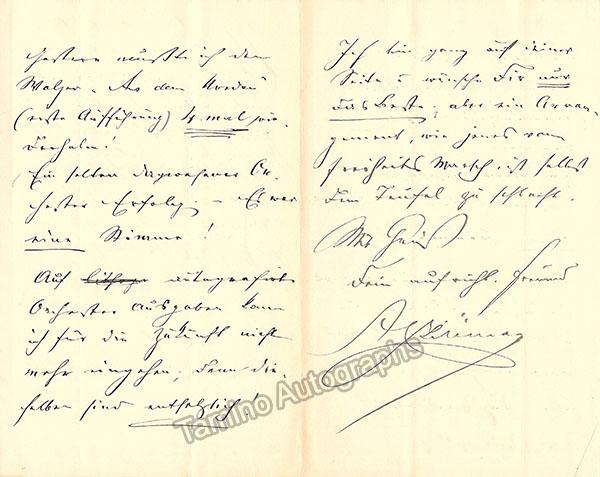 Gestern mußte ich den
Walzer „Aus dem Norden“
(erste Aufführung) 4 mal wie-
derholen!
Ein selten dagewesener Or-
chester Erfolg. – Es war
eine Stimme!
Auf autografirte
Orchester Ausgaben kann
ich für die Zukunft nicht
mehr eingehen, denn die-
selben sind entsetzlich!
Ich bin ganz auf deiner
Seite u wünsche Dir nur
das Beste, aber ein Arran-
gement, wie jenes vom
Freiheits Marsch, ist selbst
dem Teufel zu schlecht.
Mit Gruß
Dein aufricht. Freund
Tamino Autographs